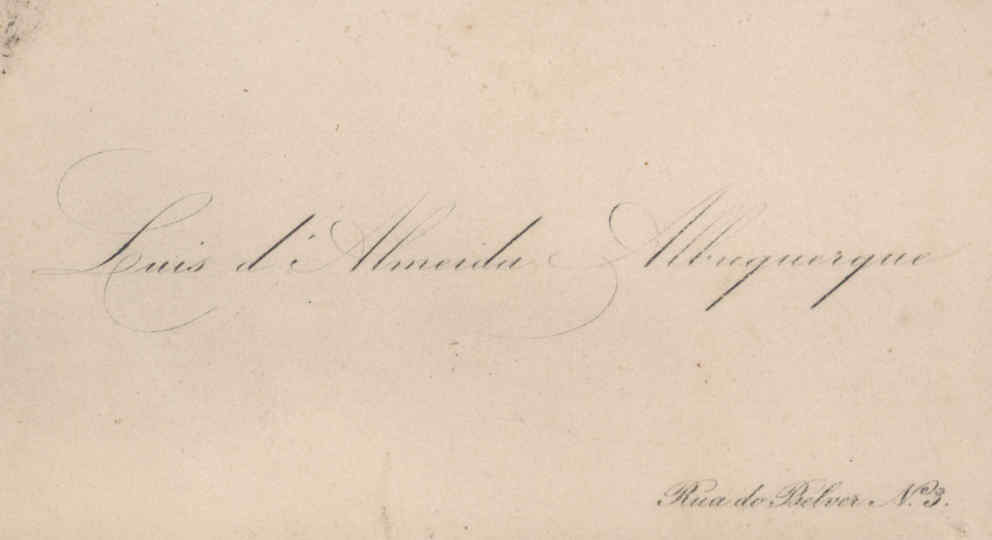 Luis d'Almeida Albuquerque
Rua do Belver N.º 3.